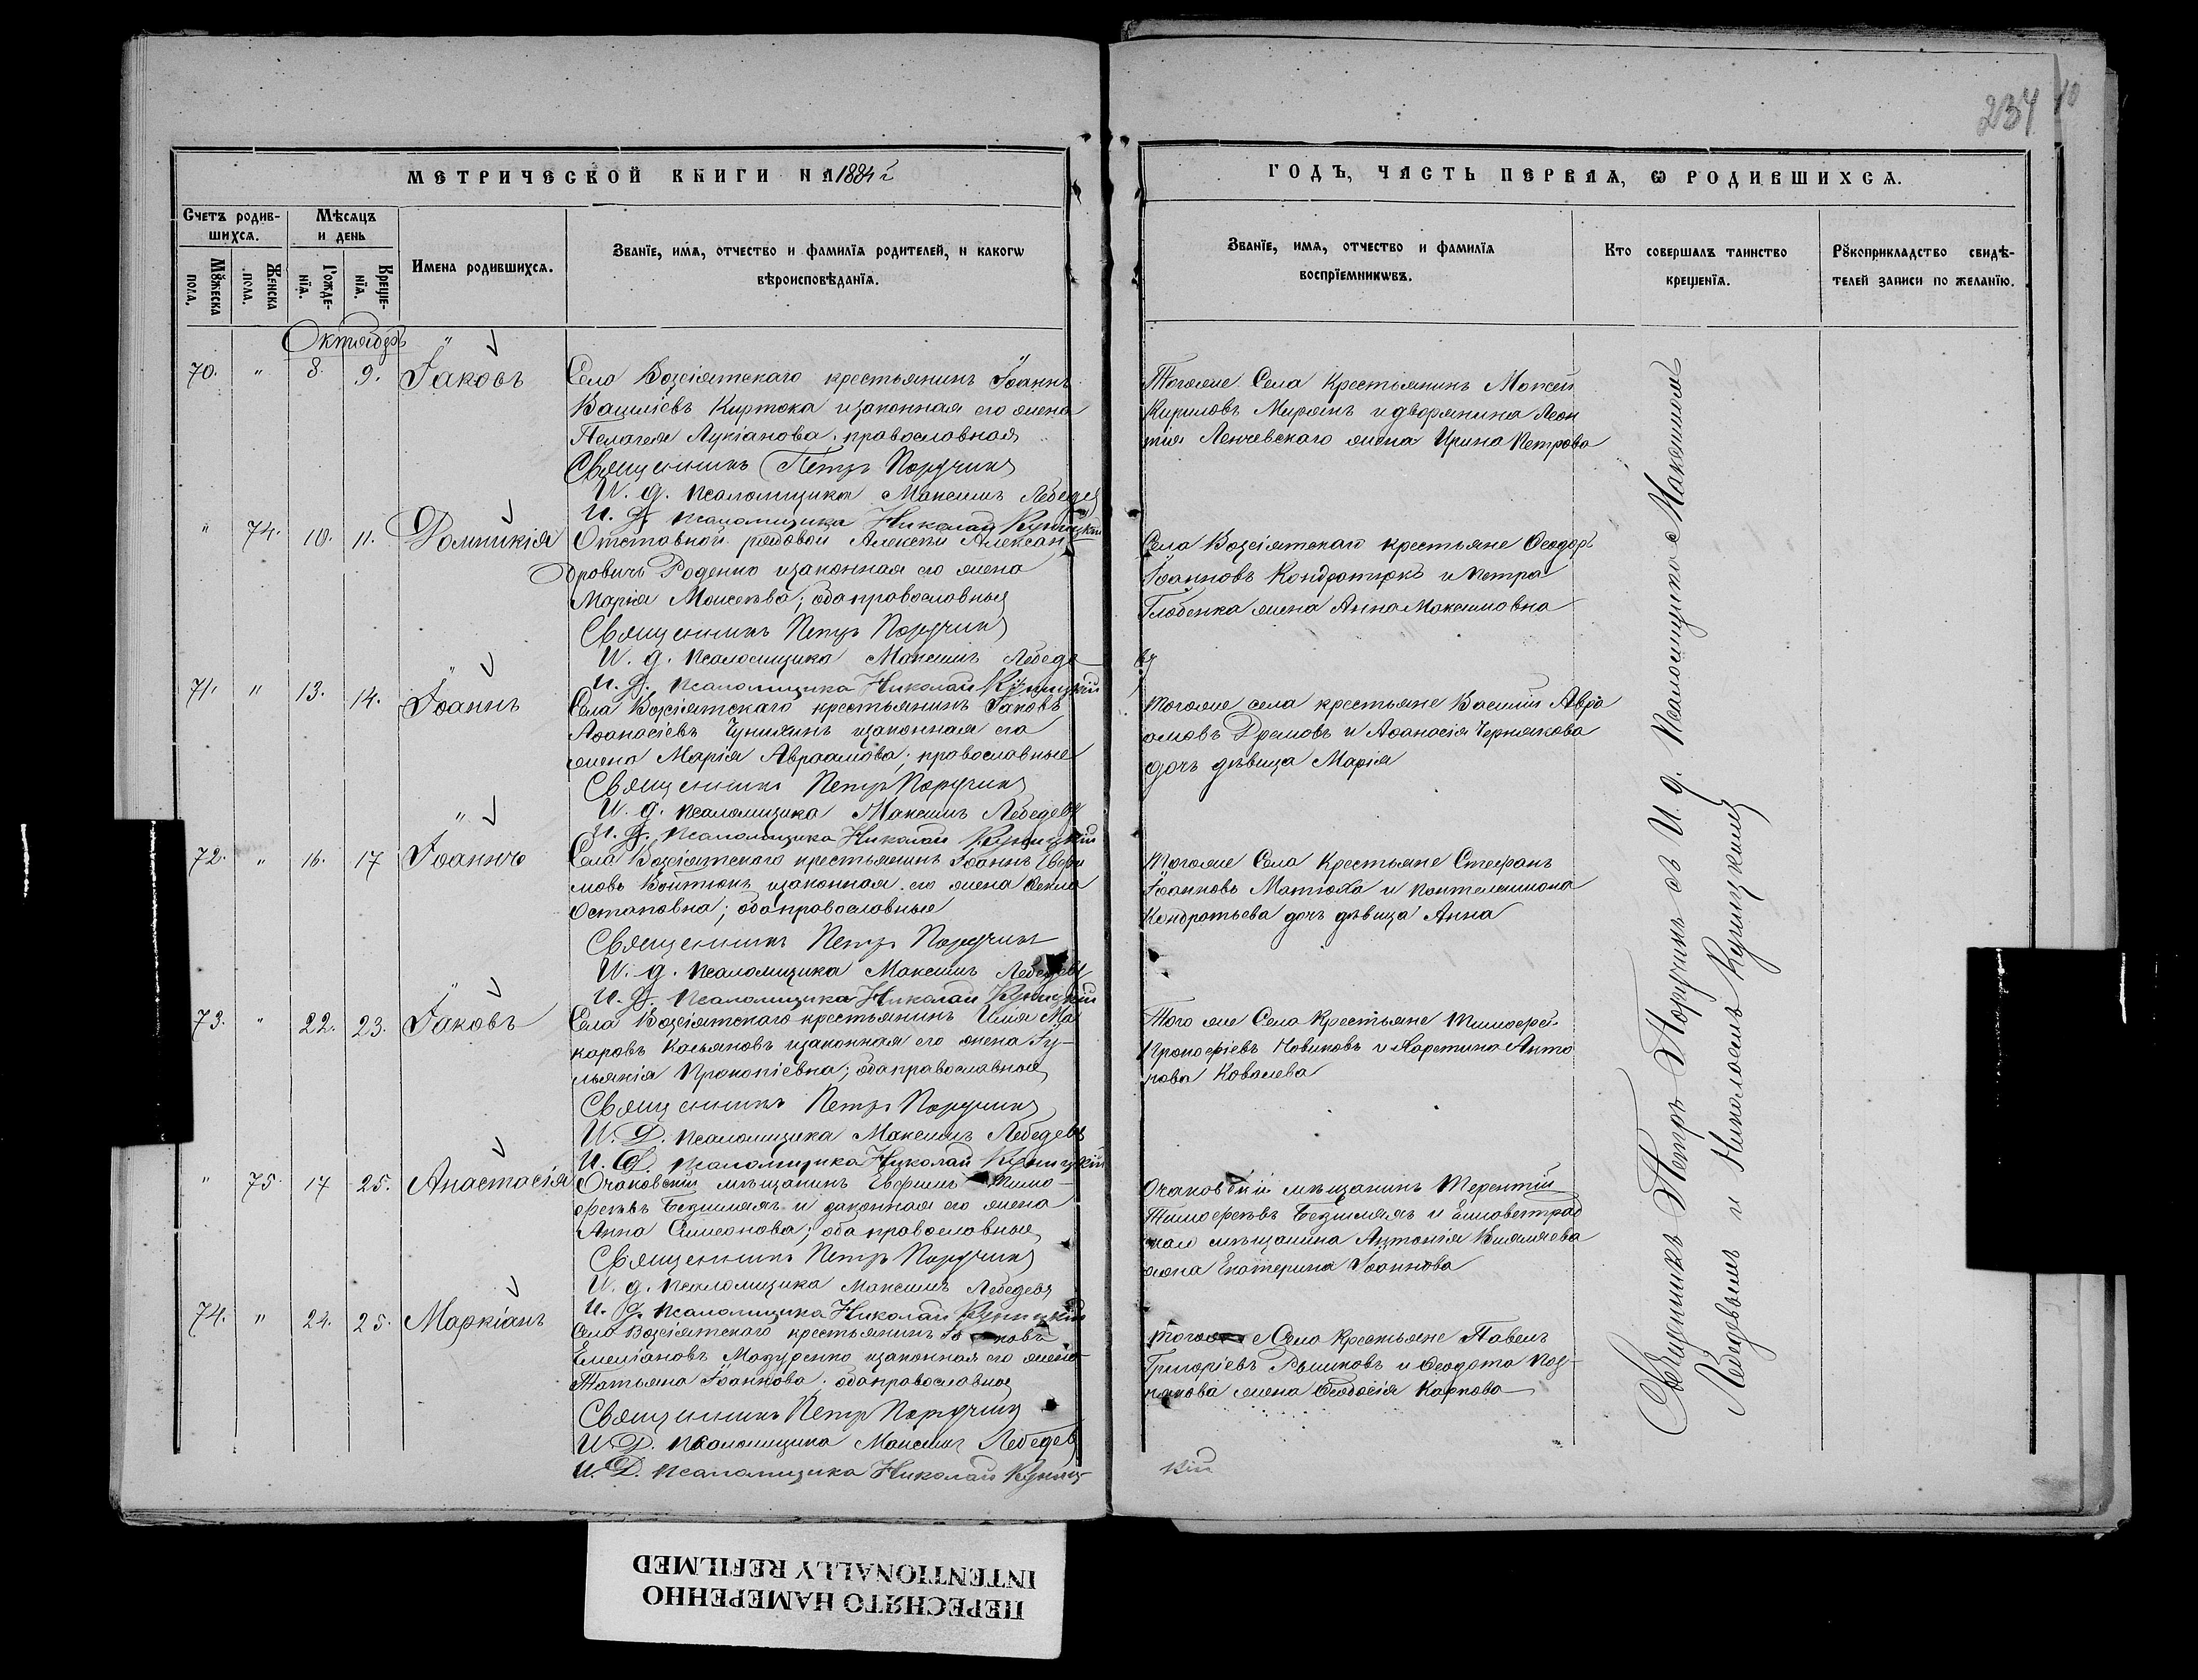 234 10
МЕТРИЧЕСКОЙ КНИГИ НА 1884й
ГОДЪ, ЧАСТЬ ПЕРВАЯ, Ѡ РОДИВШИХСѦ.
Счетъ родив-
шихсѧ.
Мꙋжеска
пола.
Женска
пола.
Мѣсѧцъ
и день
Рожде-
нїѧ.
Креще-
нїѧ.
Имена родившихсѧ.
Званїе, имѧ, отчество и фамилїѧ родителей, и какогѡ
вѣроисповѣданїѧ.
Званїе, имѧ, отчество и фамилїѧ
воспрїемникѡвъ.
Кто совершалъ таинство
крещенїѧ.
Рꙋкоприкладство свидѣ-
телей записи по желанїю.
Октябрь
70. " 8. 9. Іаковъ
Села Возсіятскаго крестьянинъ Іоаннъ
Василіевъ Киртока и законная его жена
Пелагея Лукіанова, православная
Священникъ Петръ Поручикъ
И. д. псаломщика Максимъ Лебедев
И. д. псаломщика Николай Куницкій
Тогоже Села Крестьянинъ Моисей
Кириловъ Мирянъ и дворянина Леон
тія Ленчевскаго жена Ирина Петрова
" 74. 10. 11. Домникія
Отставной рядовой Алексѣй Алексан-
дровичъ Роденко и законная его жена
Марія Моисеева; оба православныя
Священникъ Петръ Поручикъ
И. д. псаломщика Максимъ Лебеде
въ
И. д. псаломщика Николай Куницкій
Села Возсіятскаго крестьяне Ѳеодоръ
Іоанновъ Кондратюкъ и Петра
Глобенка жена Анна Максимовна
71. " 13. 14. Іоаннъ
Села Возсіятскаго крестьянинъ Іаковъ
Аѳанасіевъ Чунихинъ и законная его
жена Марія Авраамова; православные
Священникъ Петръ Поручикъ
И. д. псаломщика Максимъ Лебедевъ
И. д. псаломщика Николай Куницкій
тогоже села крестьяне Василій Авра
амовъ Дремовъ и Аѳанасія Чернякова
дочь дѣвица Марія
72. " 16. 17 Іоаннъ
Села Возсіятскаго крестьянинъ Іоаннъ Евѳи
мовъ Войтюкъ и законная его жена Ѳекла
Остаповна; оба православные
Священникъ Петръ Поручикъ
И. д. псаломщика Максимъ Лебедевъ
И. д. псаломщика Николай Куницкій
тогоже Села Крестьяне Стефанъ
Іоанновъ Матюха и Пантелеимона
Кондратьева дочь дѣвица Анна
73. " 22. 23. Іаковъ
Села Возсіятскаго крестьянинъ Илія Ма
каровъ Касьяновъ и законная его жена Іу-
льянія Прокопіевна; оба православныя
Священникъ Петръ Поручикъ
И. Д. псаломщика Максимъ Лебедевъ
И. Д. псаломщика Николай Куницкій
Того же Села Крестьяне Тимофей
Прокофіевъ Новиковъ и Харетина Анто
нова Ковалева
" 75. 17 25. Анастасія
Очаковскій мѣщанинъ Евфимъ Тимо-
феевъ Безимяхъ и законная его жена
Анна Симеонова; оба православные
Священникъ Петръ Поручикъ
И. д. псаломщика Максимъ Лебедевъ
И. д. псаломщика Николай Куницкій
Очаковскій мѣщанинъ Терентій
Тимофеевъ Безимяхъ и Елисаветград
жена Екатерина Іоаннова
74. " 24. 25. Маркіанъ
Села Возсіятскаго крестьянинъ
Емеліановъ Мазуренко и законная его жена
Татьяна Іоаннова. оба православное
Священникъ Петръ Поручикъ
И. Д. псаломщика Максимъ Лебедев
И. Д. псаломщика Николай Куниц-
кій
тогоже Села Крестьяне Павелъ
Григоріевъ Рыжковъ и Ѳеодота Поз-
някова жена Ѳеодосія Карпова
Священникъ Петръ Поручикъ съ И. д. Псаломщика Максимомъ
Лебедевымъ и Николаемъ Куницкимъ
ПЕРЕСНЯТО НАМЕРЕННО
INTENTIONALLY REFILMED